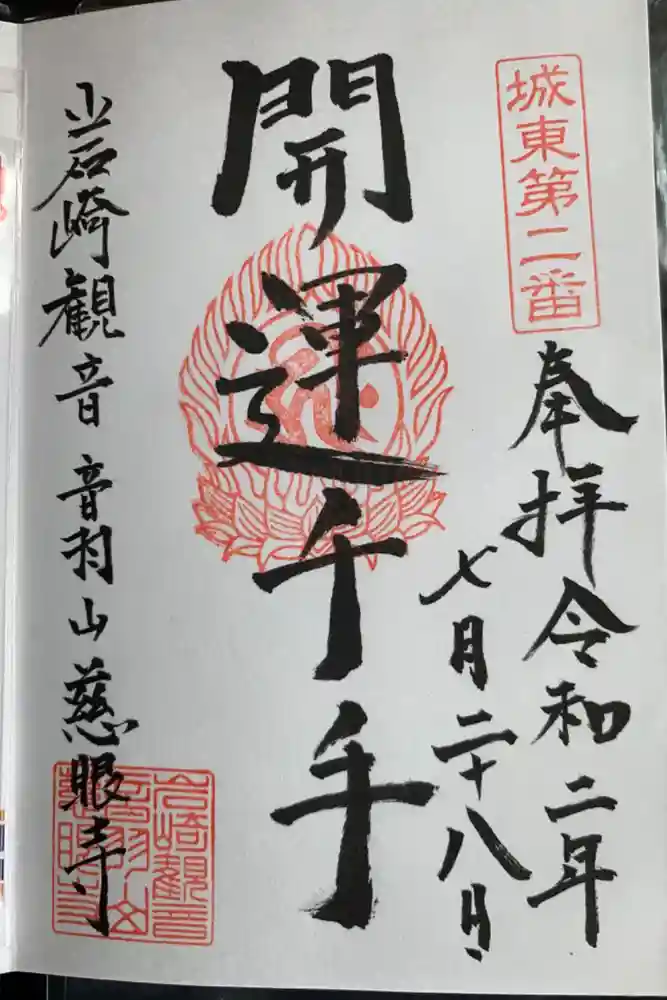 城東第二番
奉拝 令和二年
七月二十八日
開運千手
岩崎観音 音羽山 慈眼寺
岩崎観音
音羽山
慈眼寺